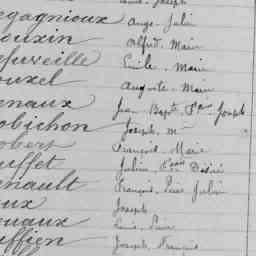 Joseph
egagnioux Ange Julien
auxin Alfred Marie
efuveille Emile Marie
ouxel Auguste Marie
enaux Jean Bapte Joseph
obichon Joseph m
obert François Marie
uffet Julien Désiré
enault François Pierre Julien
oux Joseph
ouaux Louis Pierre
uffien Joseph François